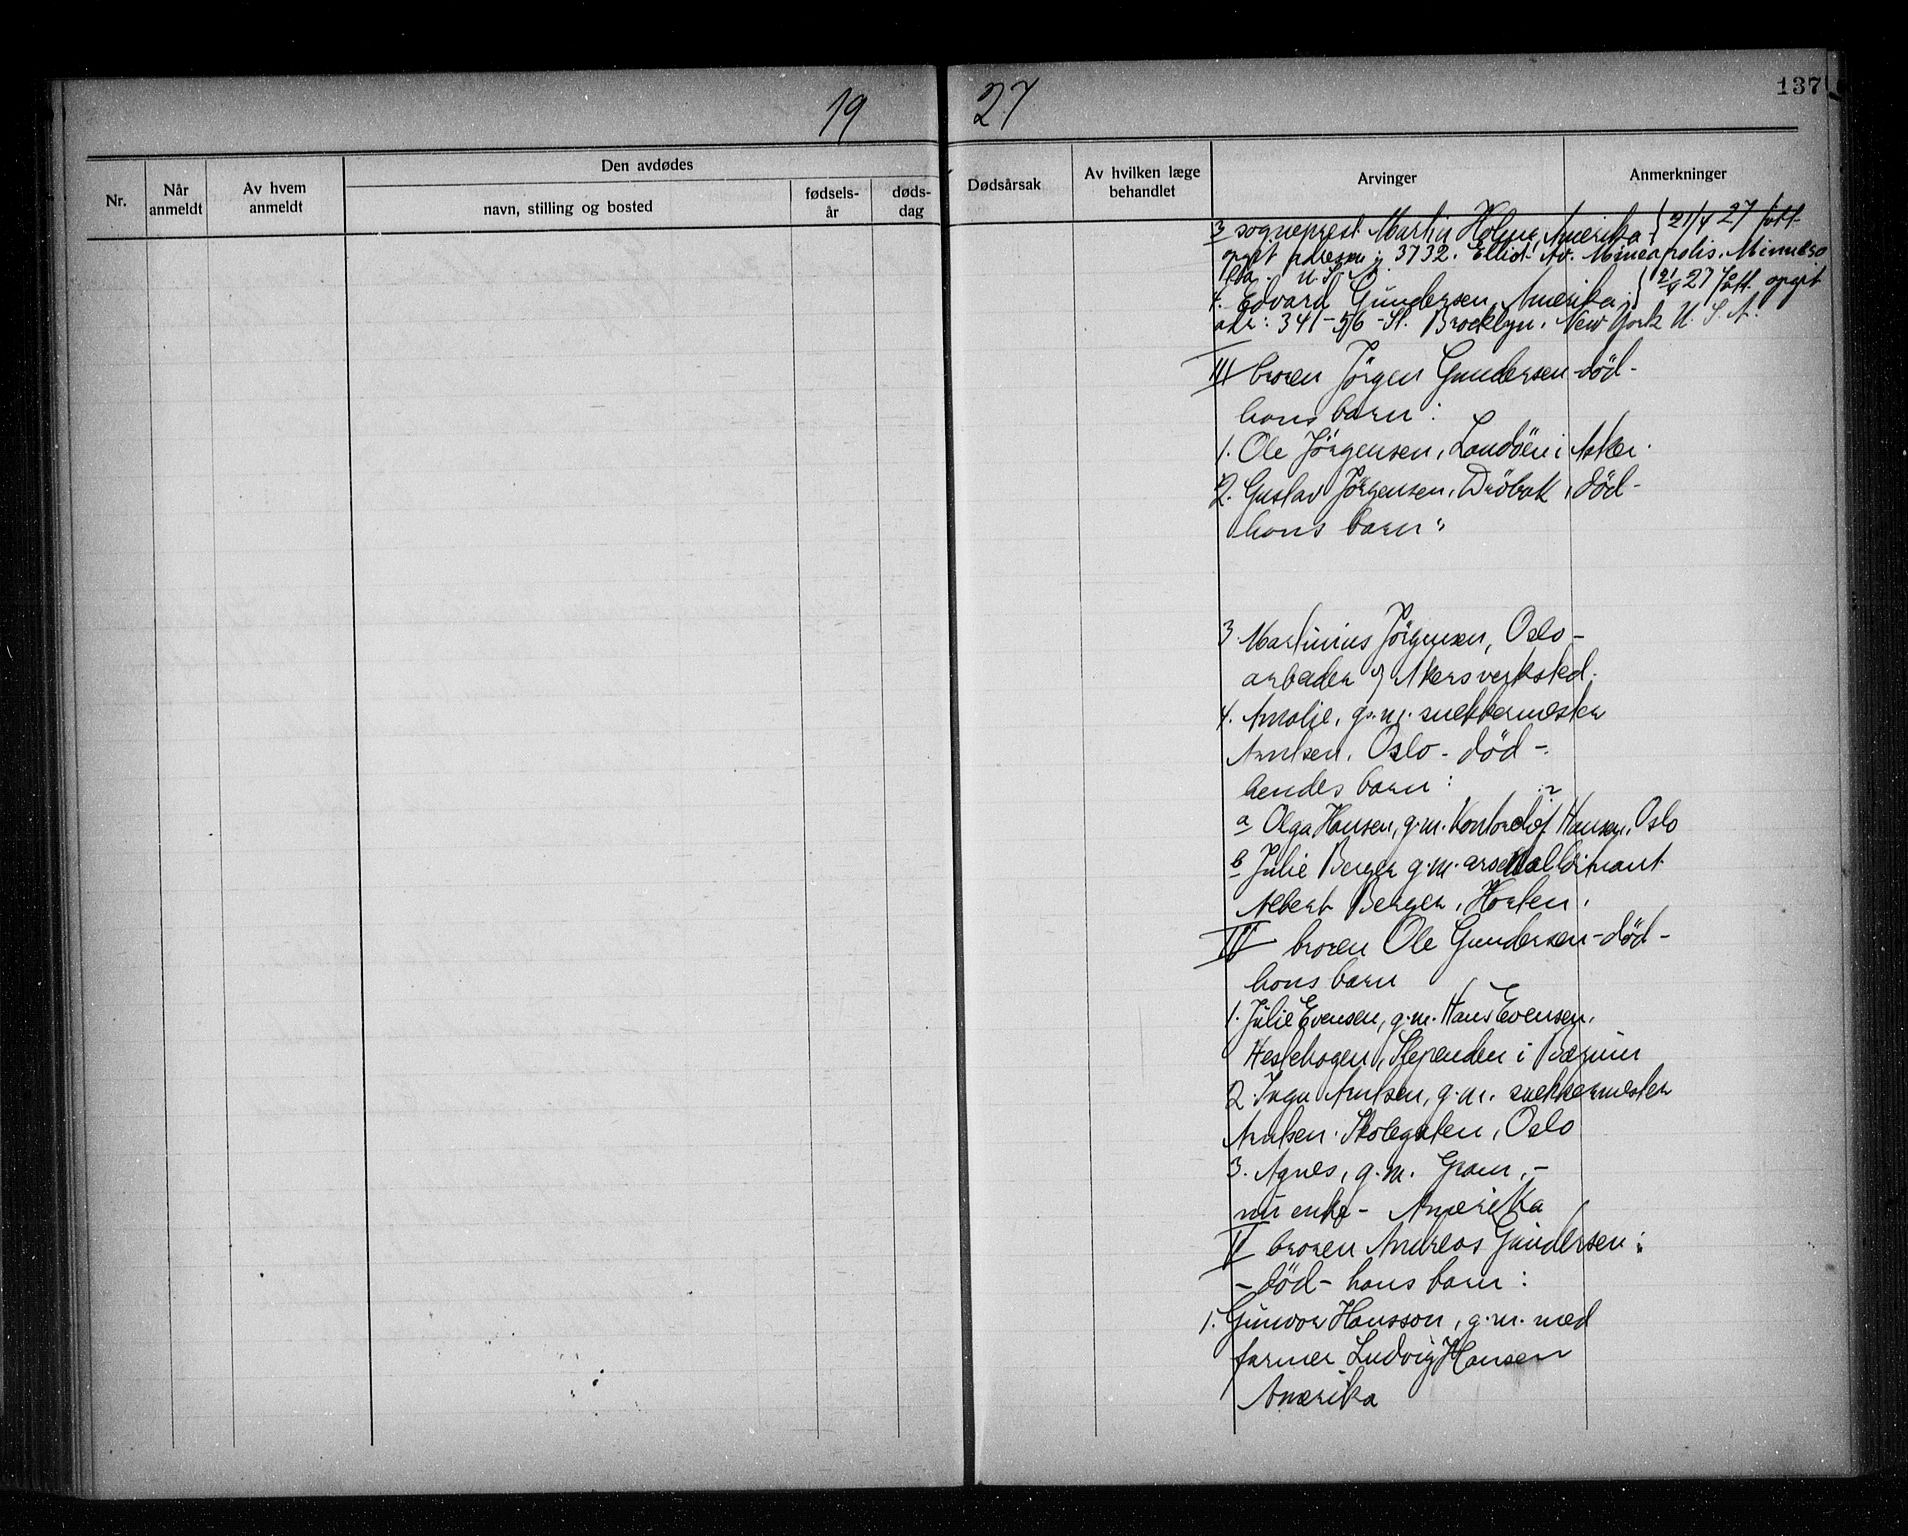 19 27
137
Nr.
Når anmeldt
Av hvem anmeldt
Den avdødes
navn, stilling og bosted
fødsels-år
døds-dag
Dødsårsak
Av hvilken læge behandlet
Arvinger
Anmerkninger
3 sogneprest Martin Holm, Amerika } 21/4 27 fått
opgit adressen: 3732. Elliot Av. Mineapolis. Minneso
ta. U.S.A.
4. Edvard Gundersen, Amerika, } 21/4 27 fått opgit
adr: 341-56-St. Brocklyn. New York U.S.A.
III broren Jörgen Gundersen - död -
hans barn:
1. Ole Jörgensen, Landöen i Asker.
2. Gustav Jörgensen, Dröbak, död -
hans barn:
3. Martinius Jörgensen, Oslo -
arbeider Akers verksted.
4. Amalie, g.m. snekkermester
Arntsen, Oslo - död -
hendes barn:
a Olga Hansen, g.m. Kontorchef Hansen, Oslo
b Julie Berger g.m. arsenalløitnant
Albert Berger, Horten,
IV broren Ole Gundersen - död -
hans barn
1. Julie Evensen, g.m. Hans Evensen,
Hestehagen, Slependen i Bærum
2. Inga Arntsen, g.m. snekkermester
Arntsen. Skolegaten, Oslo
3. Agnes, g.m. Gram, -
nu enke - Amerika
V broren Andreas Gundersen:
- död - hans barn:
1. Gunvor Hansson, g.m. med
farmer Ludvig Hansen
Amerika